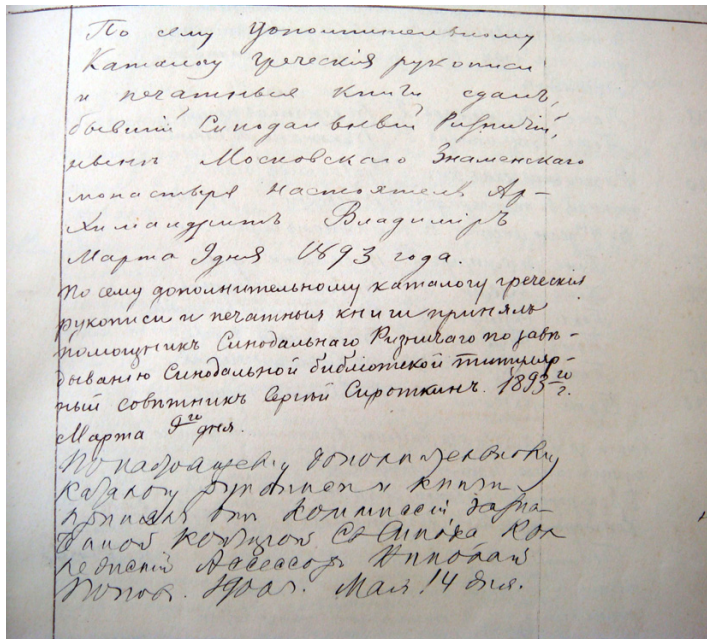 По сему дополнительному
Каталогу греческія рукописи
и печатныя книги сдалъ,
бывшій Синодальный Ризничій,
нынѣ Московскаго Знаменскаго
монастыря настоятель Ар-
химандритъ Владиміръ
Марта 9 дня 1893 года.
По сему дополнительному каталогу греческія
рукописи и печатныя книги принялъ
помощникъ Синодальнаго Ризничаго по завѣ-
дыванію Синодальной библіотекой титуляр-
ный совѣтникъ Сергѣй Сироткинъ. 1893 го г.
Марта 9 го дня.
По настоящему дополнительному
каталогу рукописи и книги
принялъ отъ Коммиссіи
Конторой Св. Синода Кол
лежскій Ассессоръ Николай
Поповъ. 1900 г. Мая 14 дня.